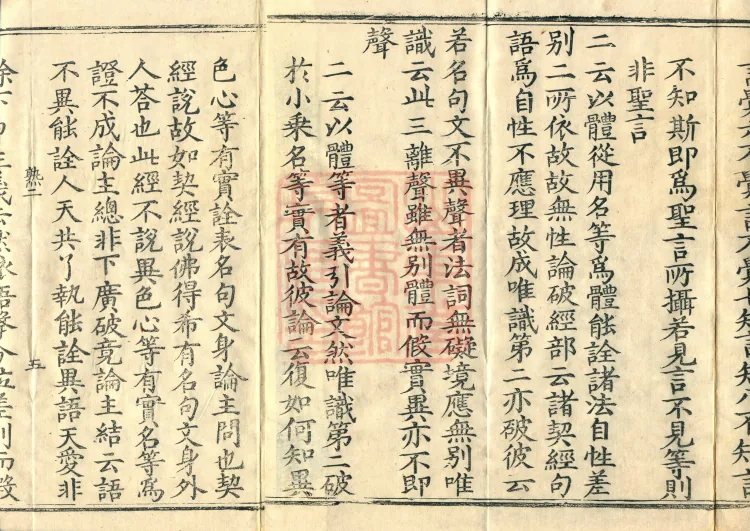 不知斯即爲聖言所攝若見言不見等則
非聖言
二云以體從用名等爲體能詮諸法自性差
别二所依故故無性論破經部云諸契經句
語爲自性不應理故成唯識第二亦破彼云
若名句文不異聲者法詞無礙境應無别唯
識云此三離聲雖無别體而假實異亦不即
聲
二云以體等者義引論文然唯識第二破
於小乘名等實有故彼論云復如何知異
色心等有實詮表名句文身論主問也契
經說故如契經說佛得希有名句文身外
人荅也此經不說異色心等有實名等爲
證不成論主總非下廣破竟論主結云語
不異能詮人天共了執能詮異語天愛非
熟二
五